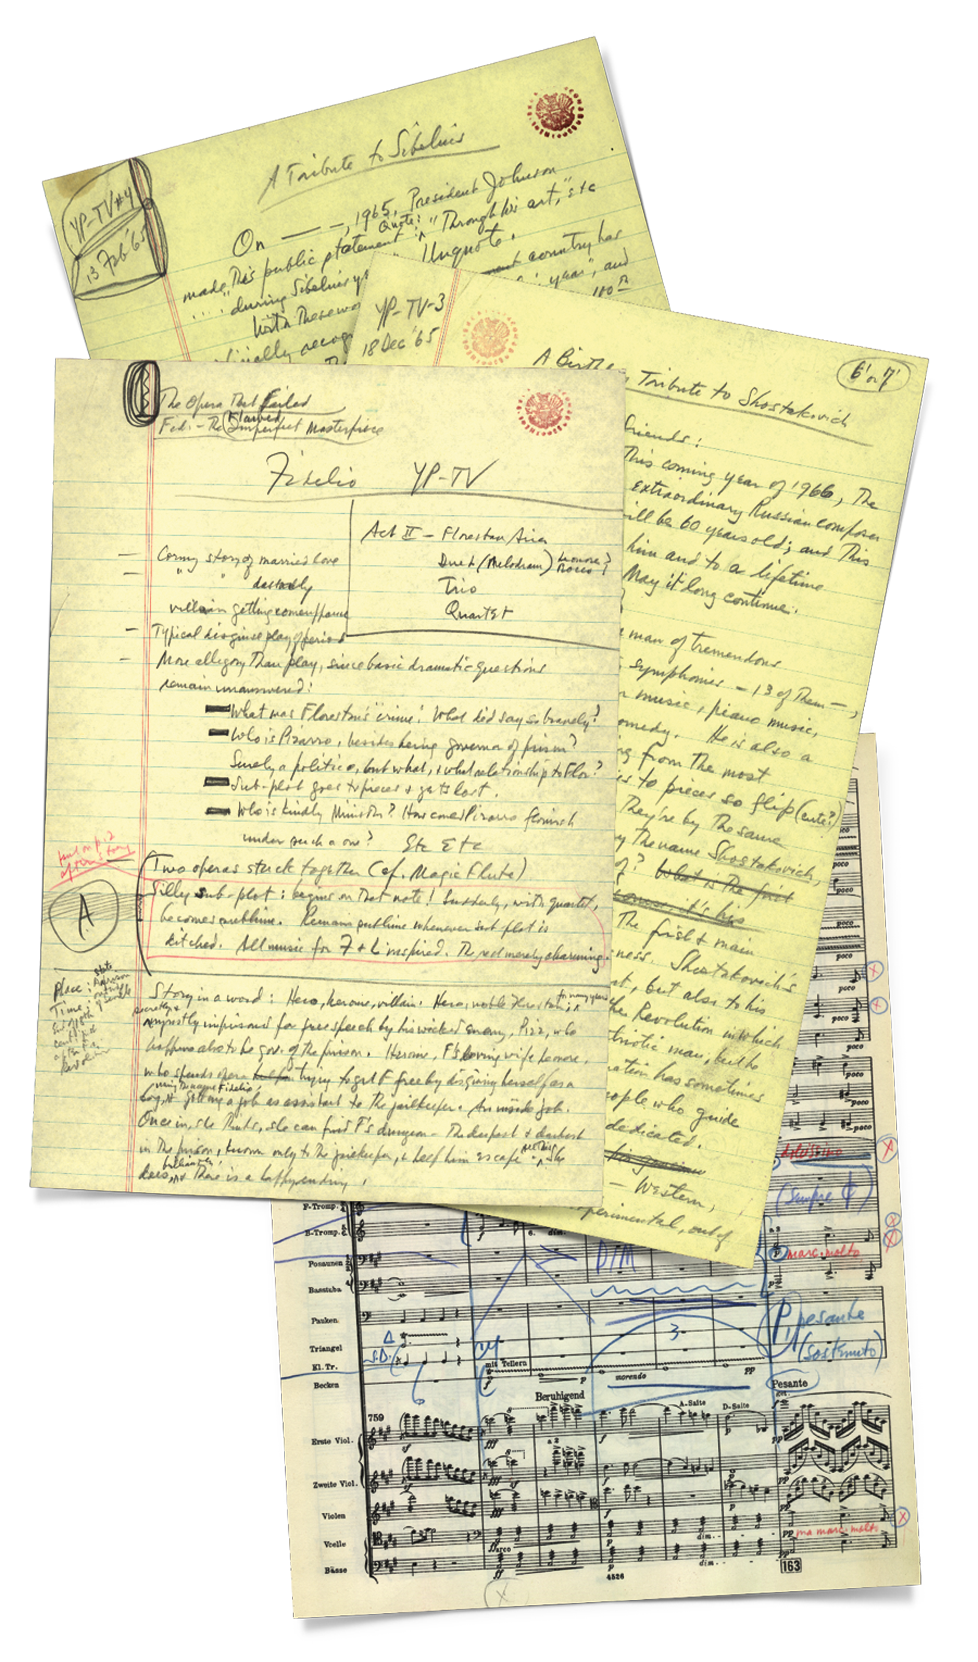 A Tribute to Sibelius
YP-TV #4
13 Feb '65
On — — —, 1965, President Johnson
made this public statement: Quote: "Through his art," etc
.... "during Sibelius
Unquote.
With these
country has
year", and
YP-TV-3
18 Dec '65
6' or 7'
A Birth Tribute to Shostakovich
friends:
This coming year of 1966, The
extraordinary Russian composer
will be 60 years old; and This
him and to a lifetime
May it long continue.
man of tremendous
symphonies – 13 of Them –,
music, piano music,
comedy. He is also a
from the most
to pieces so flip (cute?)
They're by the same
by the name Shostakovich,
of? What is the first
it's his
The first & main
ness. Shostakovich's
but also to his
the Revolution in which
triotic man, but he
ration has sometimes
people who guide
dedicated.
– Western,
experimental, out of
The Opera That Failed
Fidi – The Flawed Imperfect Masterpiece
Fidelio YP-TV
Act II – Florestan Aria
Duet (Melodram) Leonore? Rocco!
Trio
Quartet
– Corny story of married love
– " " dastardly
villain getting comeuppance
– Typical disguise play of period
– More allegory than play, since basic dramatic questions
remain unanswered:
What was Florestan's "crime"? What did say so bravely?
Who is Pizarro, besides being governor of prison?
Surely a politico, but what, & what relationship to Flor?
Sub-plot goes to pieces & gets lost.
Who is kindly Minister? How comes Pizarro flourish
under such a one? Etc Etc
Two operas stuck together (cf. Magic Flute)
A
Silly sub-plot: begins on that note! Suddenly, with quartet,
becomes sublime. Remains sublime whenever sub plot is
ditched. All music for F + L inspired. The rest merely charming.
Place: State prison outside of Seville
Time: End of 18th century
Story in a word: Hero, heroine, villain. Hero, noble Florestan, for many years
secretly & unjustly imprisoned for free speech by his wicked enemy, Pizz, who
happens also to be gov. of the prison. Heroine, F's loving wife Leonore,
who spends opera trying to get F free by disguising herself as a
boy, using the name Fidelio, & getting a job as assistant to the jailkeeper. An inside job.
Once in, she thinks, she can find F's dungeon – The deepest & darkest
in the prison, known only to the jailkeeper, & help him escape. She
does, brilliantly, & There is a happy ending.
poco
poco
poco
poco
poco
poco
poco
poco
(sempre ¢)
marc. molto
F-Tromp.
B-Tromp.
Posaunen
Basstuba
Pauken.
Triangel
Kl. Tr.
Becken
DIM
3
S.D.
P, pesante
(sostenuto)
mit Tellern
morendo
pp
Beruhigend
A-Saite
D-Saite
Pesante
759
Erste Viol.
Zweite Viol.
Violen
Vcelle
Bässe
arco
dim.
dim.
pp ma marc. molto
163
4526